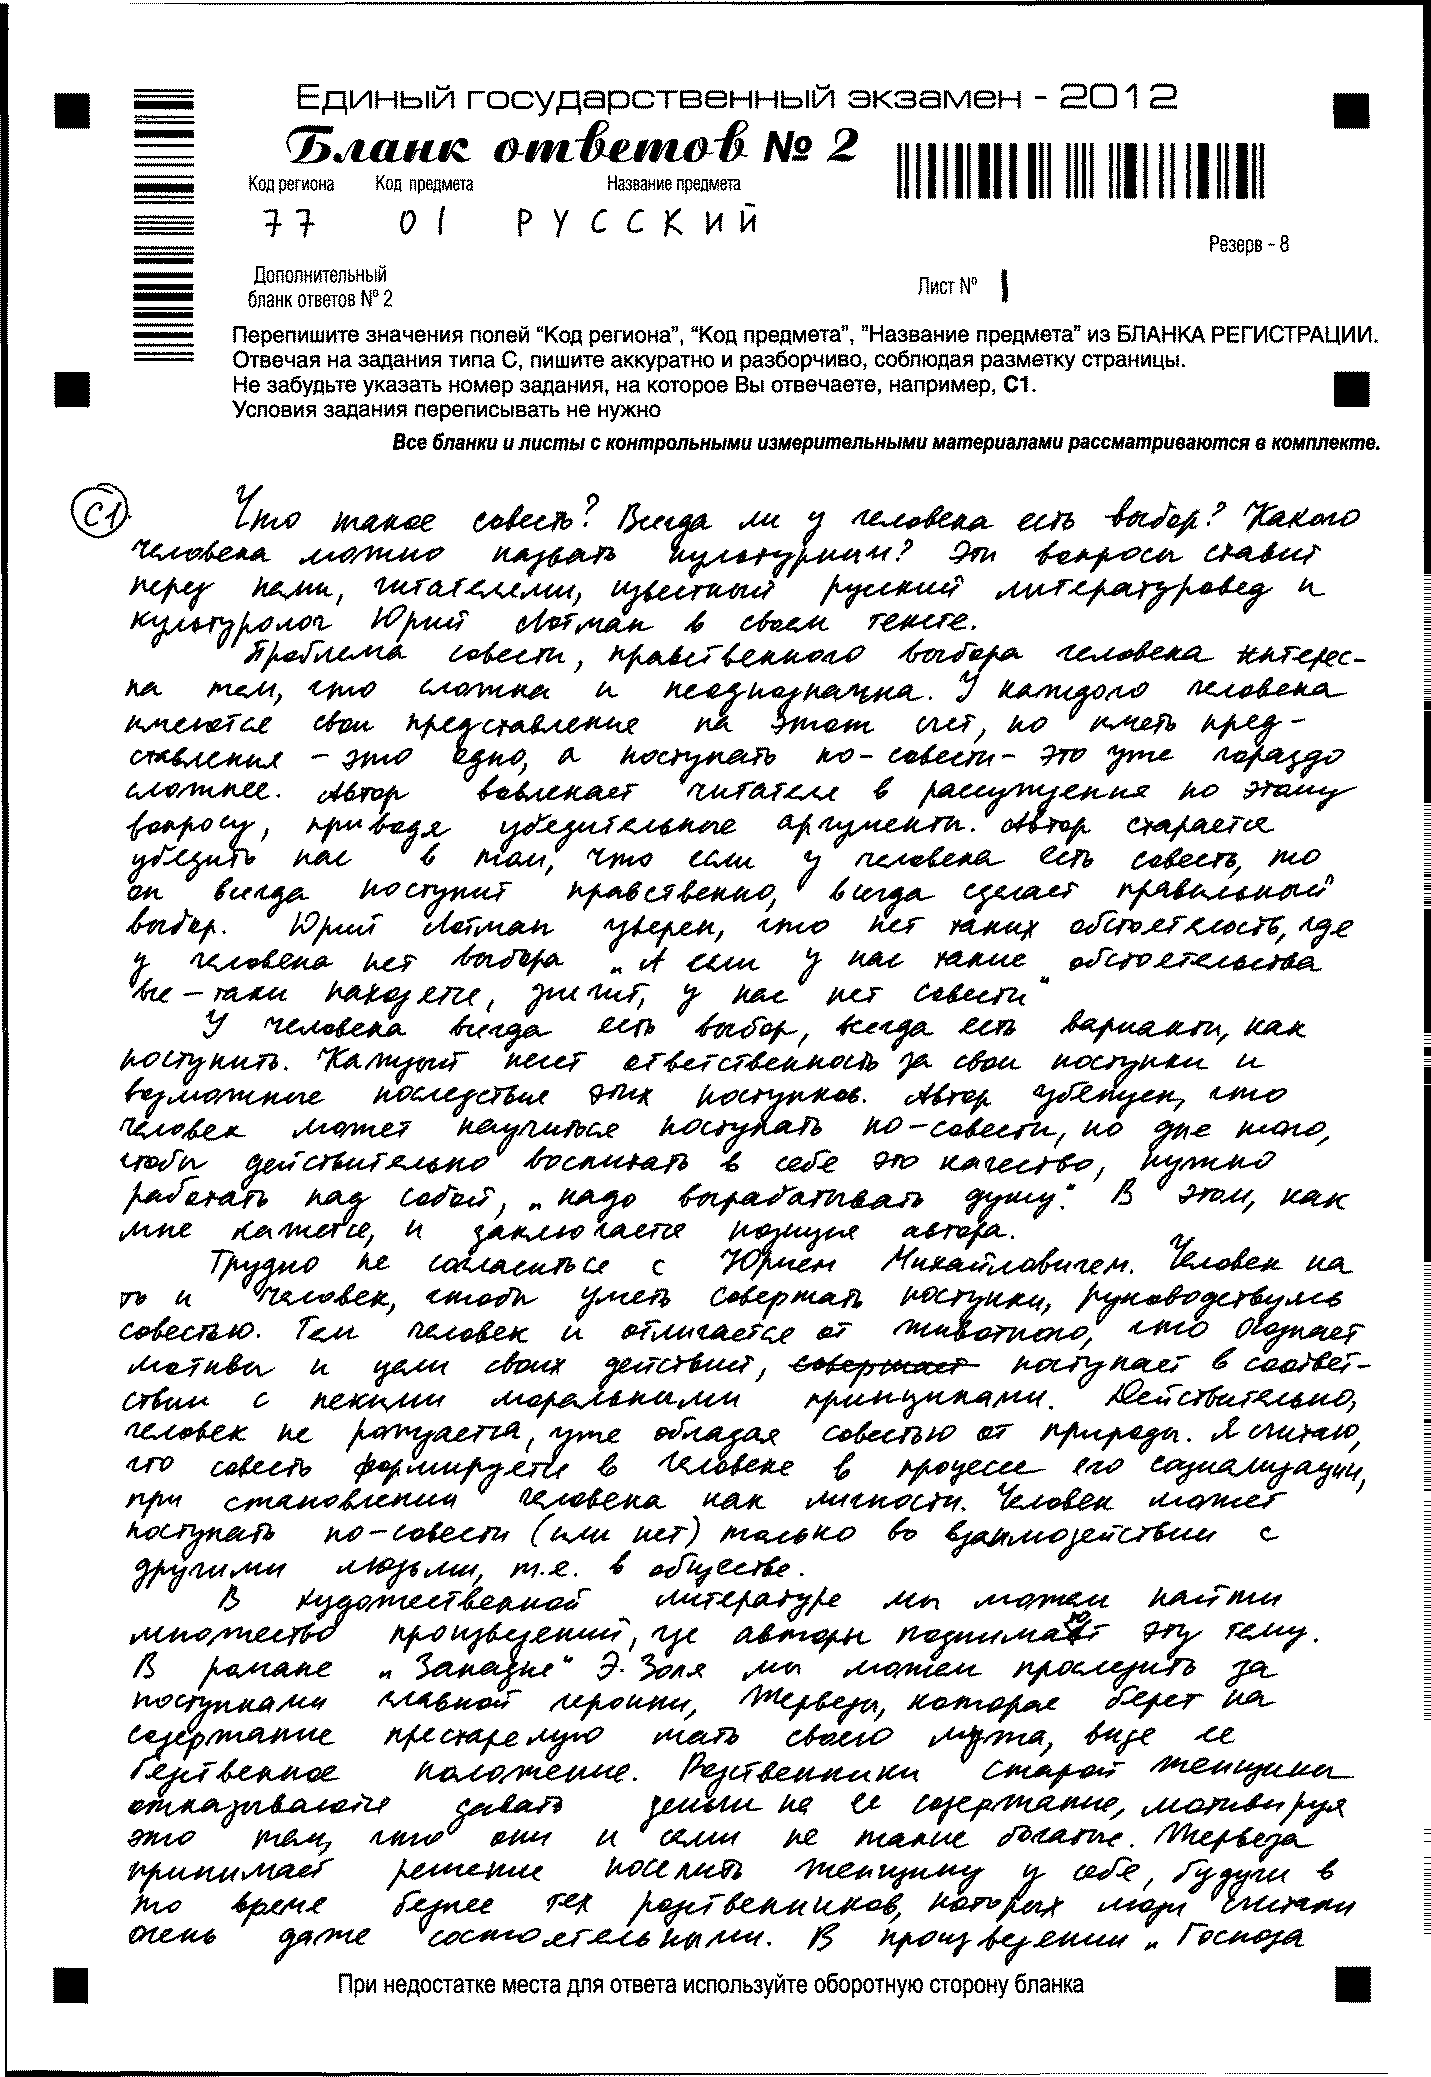 Единый государственный экзамен - 2012
Бланк ответов № 2
Код региона Код предмета Название предмета
77 01 РУССКИЙ
Резерв - 8
Дополнительный
бланк ответов № 2
Лист № 1
Перепишите значения полей "Код региона", "Код предмета", "Название предмета" из БЛАНКА РЕГИСТРАЦИИ.
Отвечая на задания типа С, пишите аккуратно и разборчиво, соблюдая разметку страницы.
Не забудьте указать номер задания, на которое Вы отвечаете, например, С1.
Условия задания переписывать не нужно
Все бланки и листы с контрольными измерительными материалами рассматриваются в комплекте.
С1. Что такое совесть? Всегда ли у человека есть выбор? Какого
человека можно назвать культурным? Эти вопросы ставит
перед нами, читателями, известный русский литературовед и
культуролог Юрий Лотман в своем тексте.
Проблема совести, нравственного выбора человека интерес-
на тем, что сложна и неоднозначна. У каждого человека
имеются свои представление на этот счет, но иметь пред-
ставления – это одно, а поступать по-совести – это уже гораздо
сложнее. Автор вовлекает читателя в рассуждения по этому
вопросу, приводя убедительные аргументы. Автор старается
убедить нас в том, что если у человека есть совесть, то
он всегда поступит нравственно, всегда сделает правильный
выбор. Юрий Лотман уверен, что нет таких обстоятелость, где
у человека нет выбора „А если у нас такие обстоятельства
все-таки находятся, значит, у нас нет совести"
У человека всегда есть выбор, всегда есть варианты, как
поступить. Каждый несет ответственность за свои поступки и
возможные последствия этих поступков. Автор убежден, что
человек может научиться поступать по-совести, но для того,
чтобы действительно воспитать в себе это качество, нужно
работать над собой, „надо вырабатывать душу". В этом, как
мне кажется, и заключается позиция автора.
Трудно не согласиться с Юрием Михайловичем. Человек на
то и человек, чтобы уметь совершать поступки, руководствуясь
совестью. Тем человек и отличается от животного, что осознает
мотивы и цели своих действий, совершает поступает в соответ-
ствии с некими моральными принципами. Действительно,
человек не рождается, уже обладая совестью от природы. Я считаю,
что совесть формируется в человеке в процессе его социализации,
при становлении человека как личности. Человек может
поступать по-совести (или нет) только во взаимодействии с
другими людьми, т.е. в обществе.
В художественной литературе мы можем найти
множество произведений, где авторы поднимают эту тему.
В романе „Западня" Э. Золя мы можем проследить за
поступками главной героини, Жервезы, которая берет на
содержание престарелую мать своего мужа, видя ее
бедственное положение. Родственники старой женщины
отказываются давать деньги на ее содержание, мотивируя
это тем, что они и сами не такие богатые. Жервеза
принимает решение поселить женщину у себя, будучи в
то время беднее тех родственников, которых люди считали
очень даже состоятельными. В произведении „Госпожа
При недостатке места для ответа используйте оборотную сторону бланка